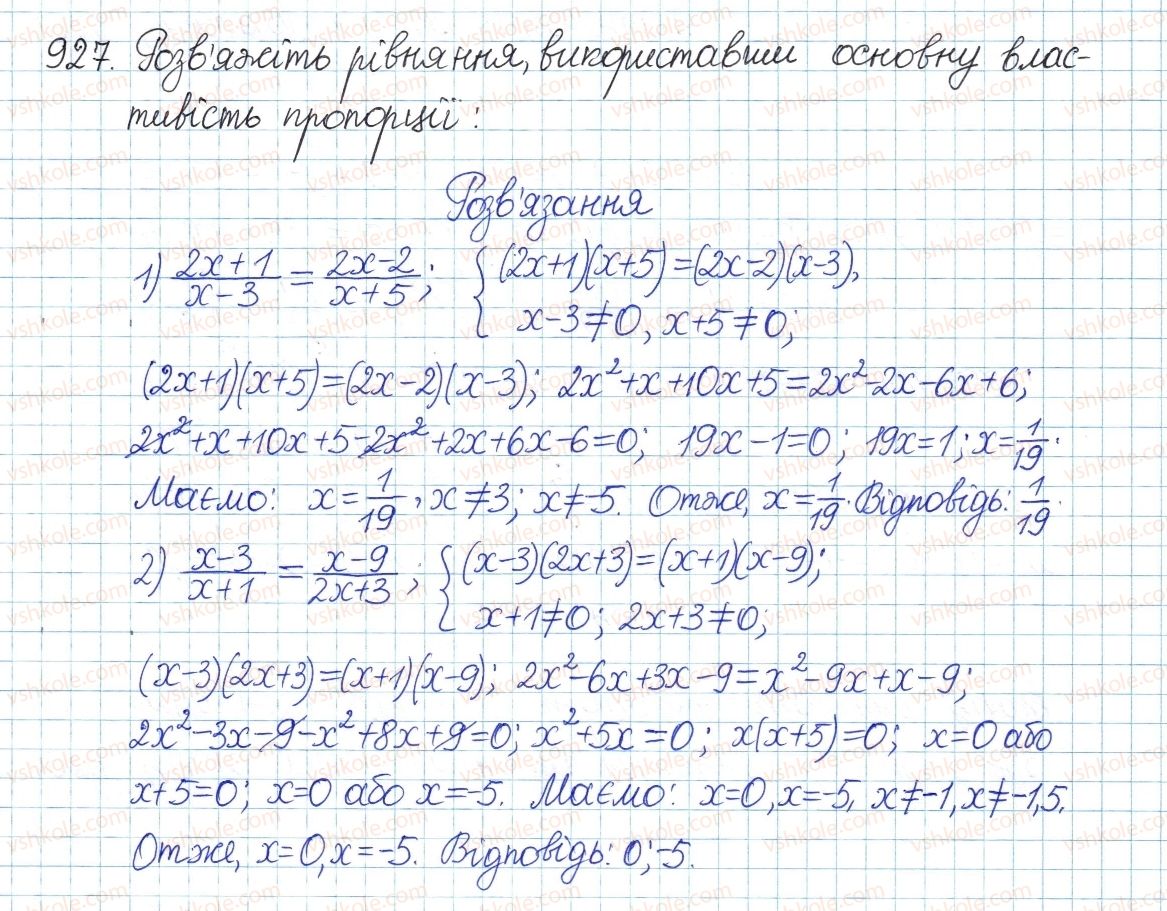 927. Розв'яжіть рівняння, використавши основну влас-
тивість пропорції:
Розв'язання
1) (2x+1)/(x-3) = (2x-2)/(x+5); { (2x+1)(x+5)=(2x-2)(x-3),
x-3≠0, x+5≠0;
(2x+1)(x+5)=(2x-2)(x-3); 2x²+x+10x+5=2x²-2x-6x+6;
2x²+x+10x+5-2x²+2x+6x-6=0; 19x-1=0; 19x=1; x=1/19.
Маємо: x=1/19, x≠3; x≠-5. Отже, x=1/19. Відповідь: 1/19.
2) (x-3)/(x+1) = (x-9)/(2x+3); { (x-3)(2x+3)=(x+1)(x-9);
x+1≠0; 2x+3≠0;
(x-3)(2x+3)=(x+1)(x-9); 2x²-6x+3x-9=x²-9x+x-9;
2x²-3x-9-x²+8x+9=0; x²+5x=0; x(x+5)=0; x=0 або
x+5=0; x=0 або x=-5. Маємо: x=0, x=-5, x≠-1, x≠-1,5.
Отже, x=0, x=-5. Відповідь: 0; -5.
vshkole.com